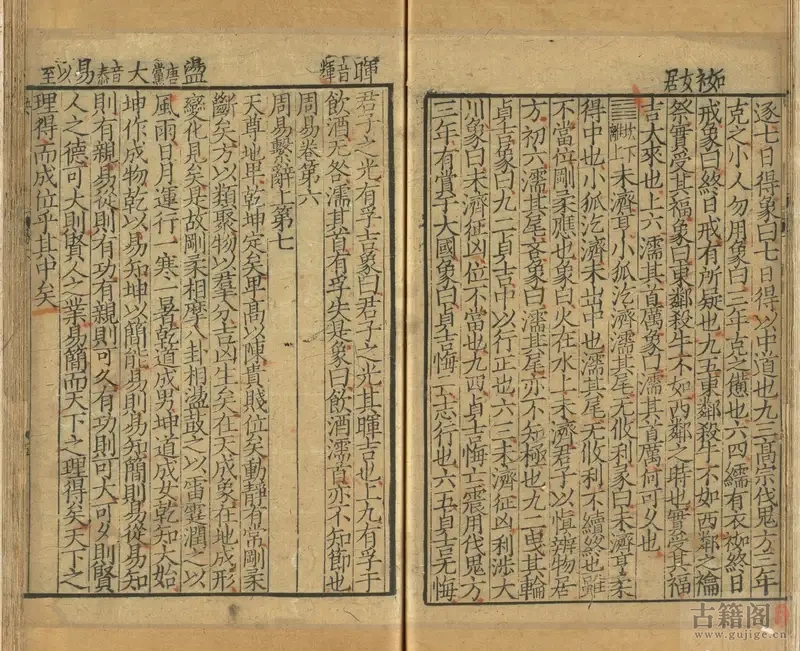 袽女居
逐七日得象曰七日得以中道也九三髙宗伐鬼方三年
克之小人勿用象曰三年克之憊也六四繻有衣袽終日
戒象曰終日戒有所疑也九五東鄰殺牛不如西鄰之禴
祭實受其福象曰東鄰殺牛不如西鄰之時也實受其福
吉大來也上六濡其首厲象曰濡其首厲何可久也
䷿坎下離上未濟亨小狐汔濟濡其尾无攸利彖曰未濟亨柔
得中也小狐汔濟未出中也濡其尾无攸利不續終也雖
不當位剛柔應也象曰火在水上未濟君子以慎辨物居
方初六濡其尾吝象曰濡其尾亦不知極也九二曳其輪
貞吉象曰九二貞吉中以行正也六三未濟征凶利涉大
川象曰未濟征凶位不當也九四貞吉悔亡震用伐鬼方
三年有賞于大國象曰貞吉悔亡志行也六五貞吉无悔
暉音輝 盪唐黨 大音泰 易以至
君子之光有孚吉象曰君子之光其暉吉也上九有孚于
飲酒无咎濡其首有孚失是象曰飲酒濡首亦不知節也
周易卷第六
周易繫辭上第七
天尊地卑乾坤定矣卑髙以陳貴賤位矣動靜有常剛柔
斷矣方以類聚物以羣分吉凶生矣在天成象在地成形
變化見矣是故剛柔相摩八卦相盪鼓之以雷霆潤之以
風雨日月運行一寒一暑乾道成男坤道成女乾知大始
坤作成物乾以易知坤以簡能易則易知簡則易從易知
則有親易從則有功有親則可久有功則可大可久則賢
人之德可大則賢人之業易簡而天下之理得矣天下之
理得而成位乎其中矣
古籍阁
www.gujige.cn